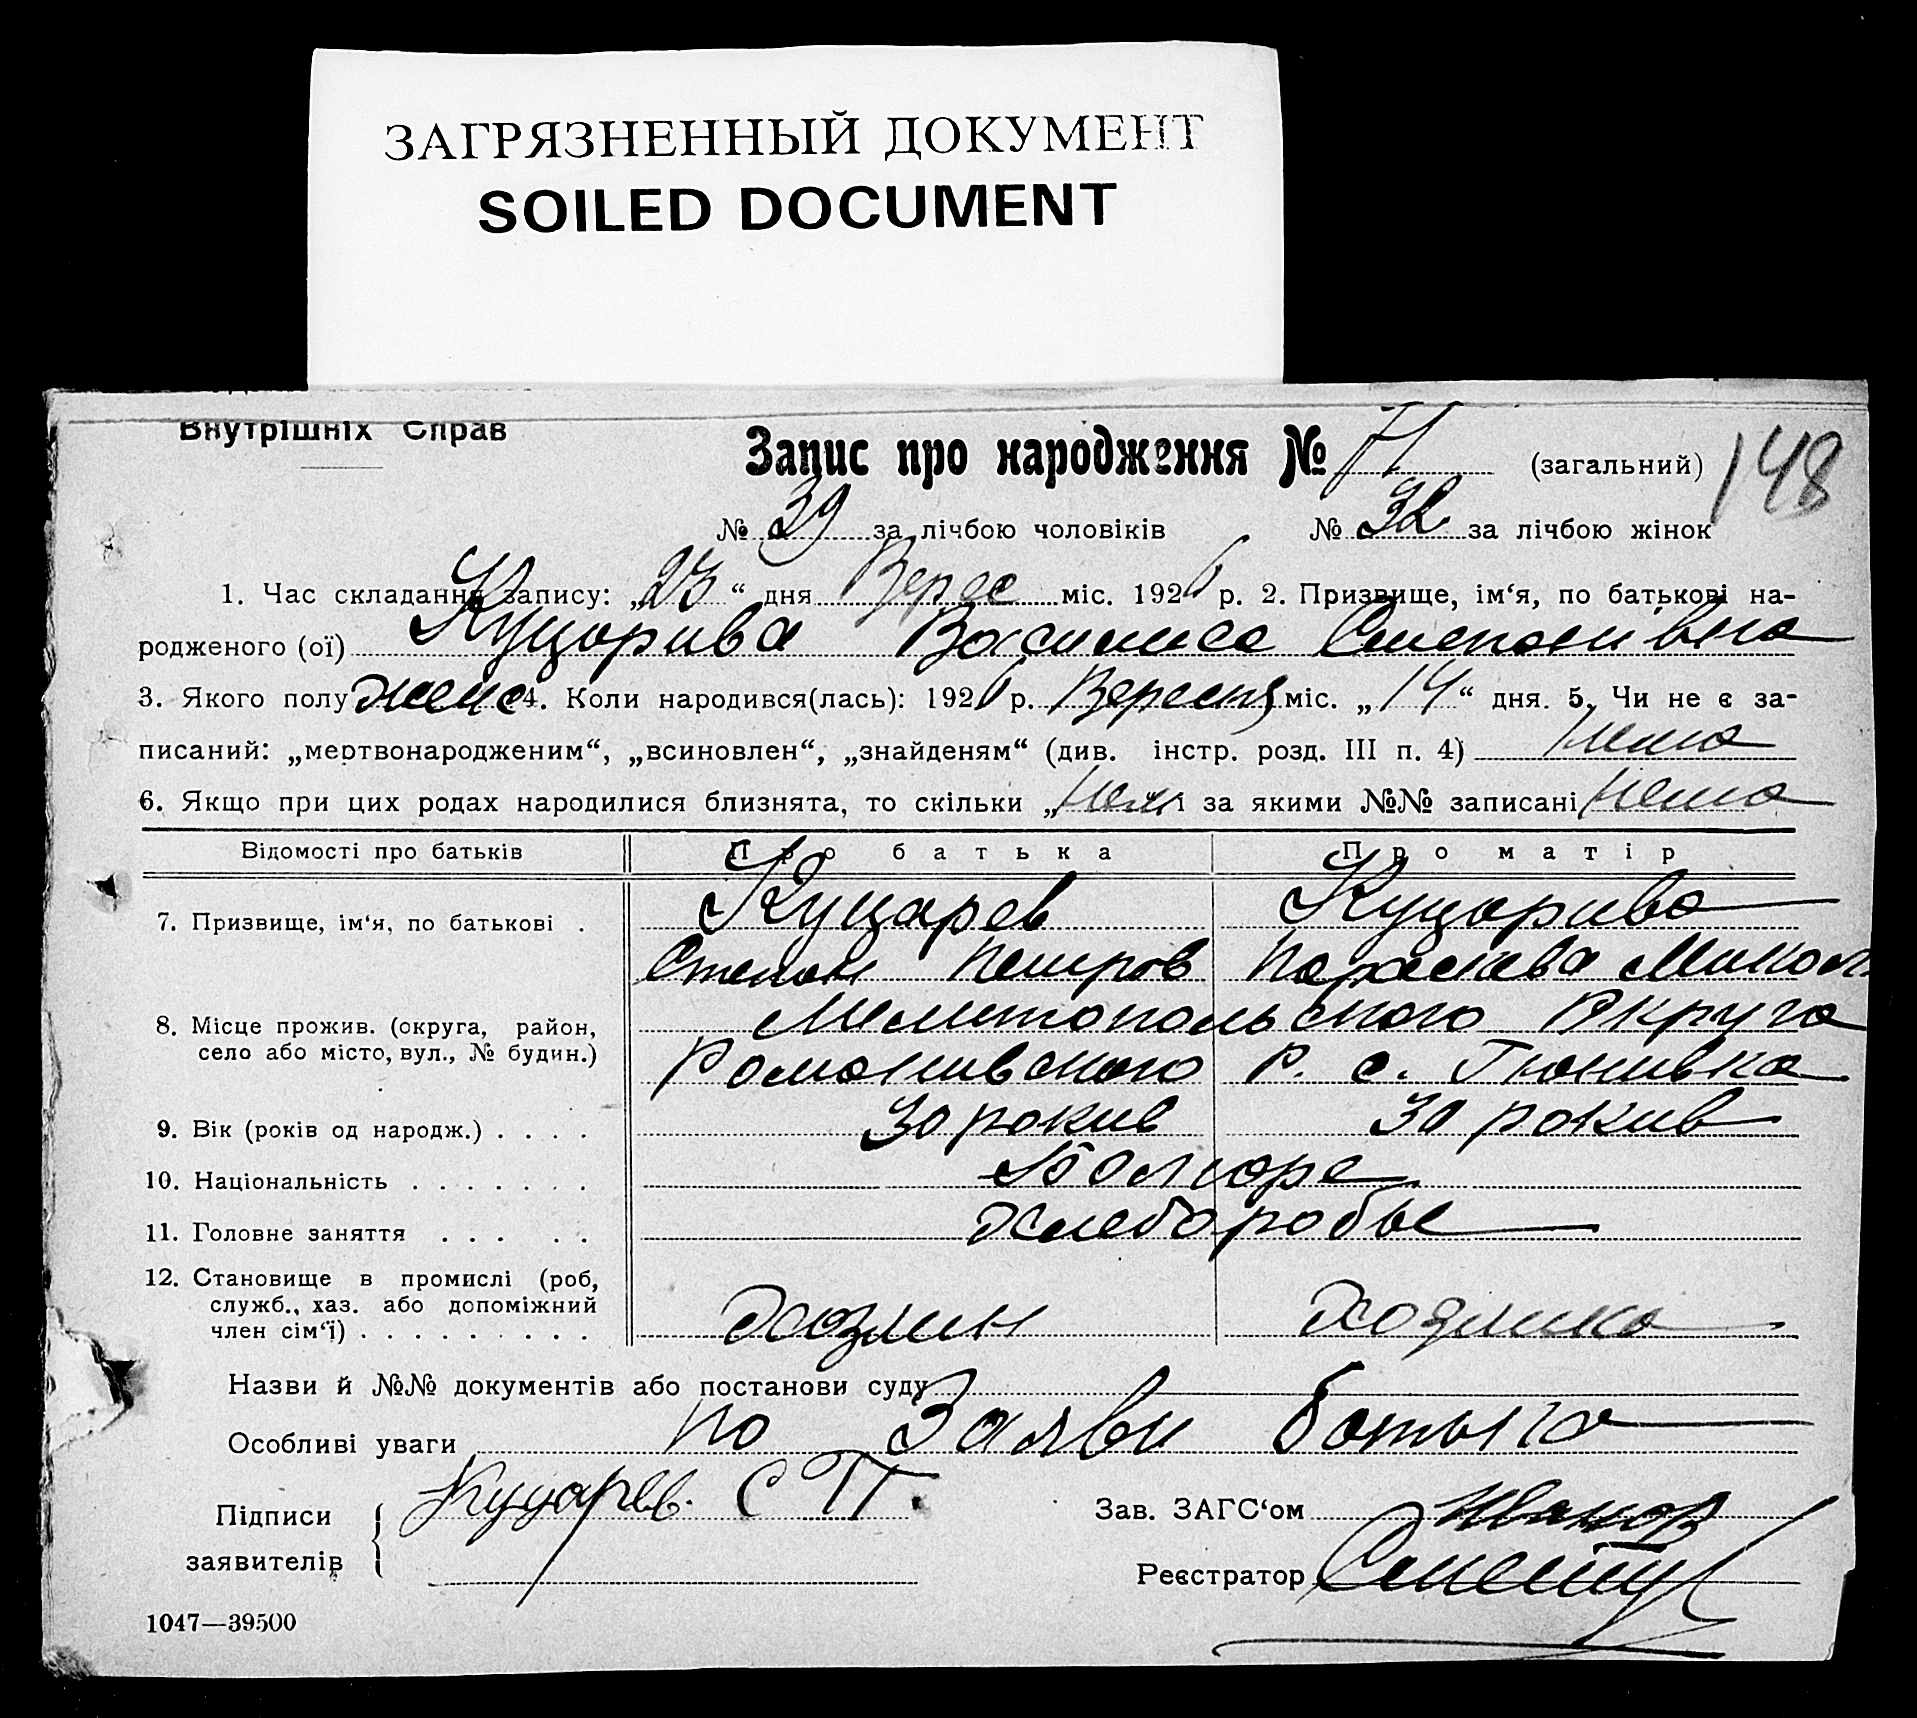 ЗАГРЯЗНЕННЫЙ ДОКУМЕНТ
SOILED DOCUMENT
Внутрішніх Справ
Запис про народження № 71 (загальний) 148
№ 39 за лічбою чоловіків № 32 за лічбою жінок
1. Час складання запису: „23“ дня Верес міс. 1926 р. 2. Призвище, ім‘я, по батькові на-
родженого (ої) Куцарива Василиса Степанивна
3. Якого полу женс 4. Коли народився(лась): 1926 р. Вересня міс. „14“ дня. 5. Чи не є за-
писаний: „мертвонародженим“, „всиновлен“, „знайденям“ (див. інстр. розд. III п. 4) Нема
6. Якщо при цих родах народилися близнята, то скільки „Нема і за якими №№ записані Нема
Відомості про батьків Про батька Про матір
7. Призвище, ім‘я, по батькові . Куцарев Куцарива
Степан Петров Параскева Микол.
8. Місце прожив. (округа, район, Мелитопольского Округа
село або місто, вул., № будин.) Романивского Р. с. Гюнивка
9. Вік (років од народж.) . . . . 30 рокив 30 рокив
10. Національність . . . . . . . Болгаре
11. Головне заняття . . . . . Хлеборобы
12. Становище в промислі (роб,
служб., хаз. або допоміжний
член сім‘ї) . . . . . . . . . Хозяин Хозяика
Назви й №№ документів або постанови суду
Особливі уваги по Заяви батька
Підписи Куцарев. С П. Зав. ЗАГС‘ом
заявителів Реєстратор
1047—39500